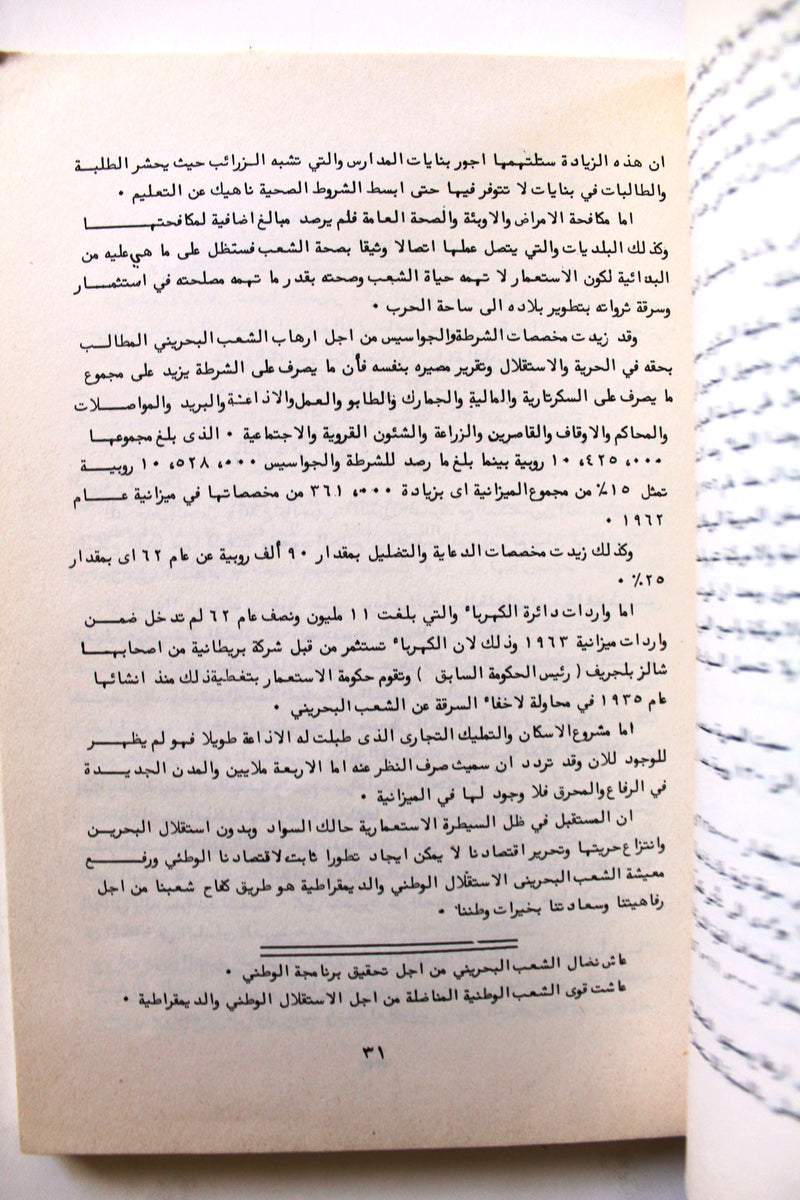 ان هذه الزيادة ستلتهمها اجور بنايات المدارس والتي تشبه الزرائب حيث يحشر الطلبة
والطالبات في بنايات لا تتوفر فيها حتى ابسط الشروط الصحية ناهيك عن التعليم .
اما مكافحة الامراض والاوبئة والصحة العامة فلم يرصد مبالغ اضافية لمكافحتها
وكذلك البلديات والتي يتصل عملها اتصالا وثيقا بصحة الشعب فستظل على ما هي عليه من
البدائية لكون الاستعمار لا تهمه حياة الشعب وصحته بقدر ما تهمه مصلحته في استثمار
وسرقة ثرواته بتطوير بلاده الى ساحة الحرب .
وقد زيدت مخصصات الشرطة والجواسيس من اجل ارهاب الشعب البحريني المطالب
بحقه في الحرية والاستقلال وتقرير مصيره بنفسه فأن ما يصرف على الشرطة يزيد على مجموع
ما يصرف على السكرتارية والمالية والجمارك والطابو والعمل والاذاعة والبريد والمواصلات
والمحاكم والاوقاف والقاصرين والزراعة والشئون القروية والاجتماعية . الذى بلغ مجموعها
١٠،٤٢٥،٠٠٠ روبية بينما بلغ ما رصد للشرطة والجواسيس ١٠،٥٢٨،٠٠٠ روبية
تمثل ١٥٪ من مجموع الميزانية اى بزيادة ٣٦١،٠٠٠ من مخصصاتها في ميزانية عام
١٩٦٢ .
وكذلك زيدت مخصصات الدعاية والتضليل بمقدار ٩٠ ألف روبية عن عام ٦٢ اى بمقدار
٢٥٪ .
اما واردات دائرة الكهرباء والتي بلغت ١١ مليون ونصف عام ٦٢ لم تدخل ضمن
واردات ميزانية ١٩٦٣ وذلك لان الكهرباء تستثمر من قبل شركة بريطانية من اصحابها
شالز بلجريف ( رئيس الحكومة السابق ) وتقوم حكومة الاستعمار بتغطية ذلك منذ انشائها
عام ١٩٣٥ في محاولة لاخفاء السرقة عن الشعب البحريني .
اما مشروع الاسكان والتمليك التجارى الذى طبلت له الاذاعة طويلا فهو لم يظهر
للوجود للان وقد تردد ان سميث صرف النظر عنه اما الاربعة ملايين والمدن الجديدة
في الرفاع والمحرق فلا وجود لها في الميزانية .
ان المستقبل في ظل السيطرة الاستعمارية حالك السواد وبدون استقلال البحرين
وانتزاع حريتها وتحرير اقتصادنا لا يمكن ايجاد تطورا ثابت لاقتصادنا الوطني ورفع
معيشة الشعب البحرينى الاستقلال الوطني والديمقراطية هو طريق كفاح شعبنا من اجل
رفاهيتنا وسعادتنا بخيرات وطننا .
عاش نضال الشعب البحريني من اجل تحقيق برنامجة الوطني .
عاشت قوى الشعب الوطنية المناضلة من اجل الاستقلال الوطني والديمقراطية .
٣١